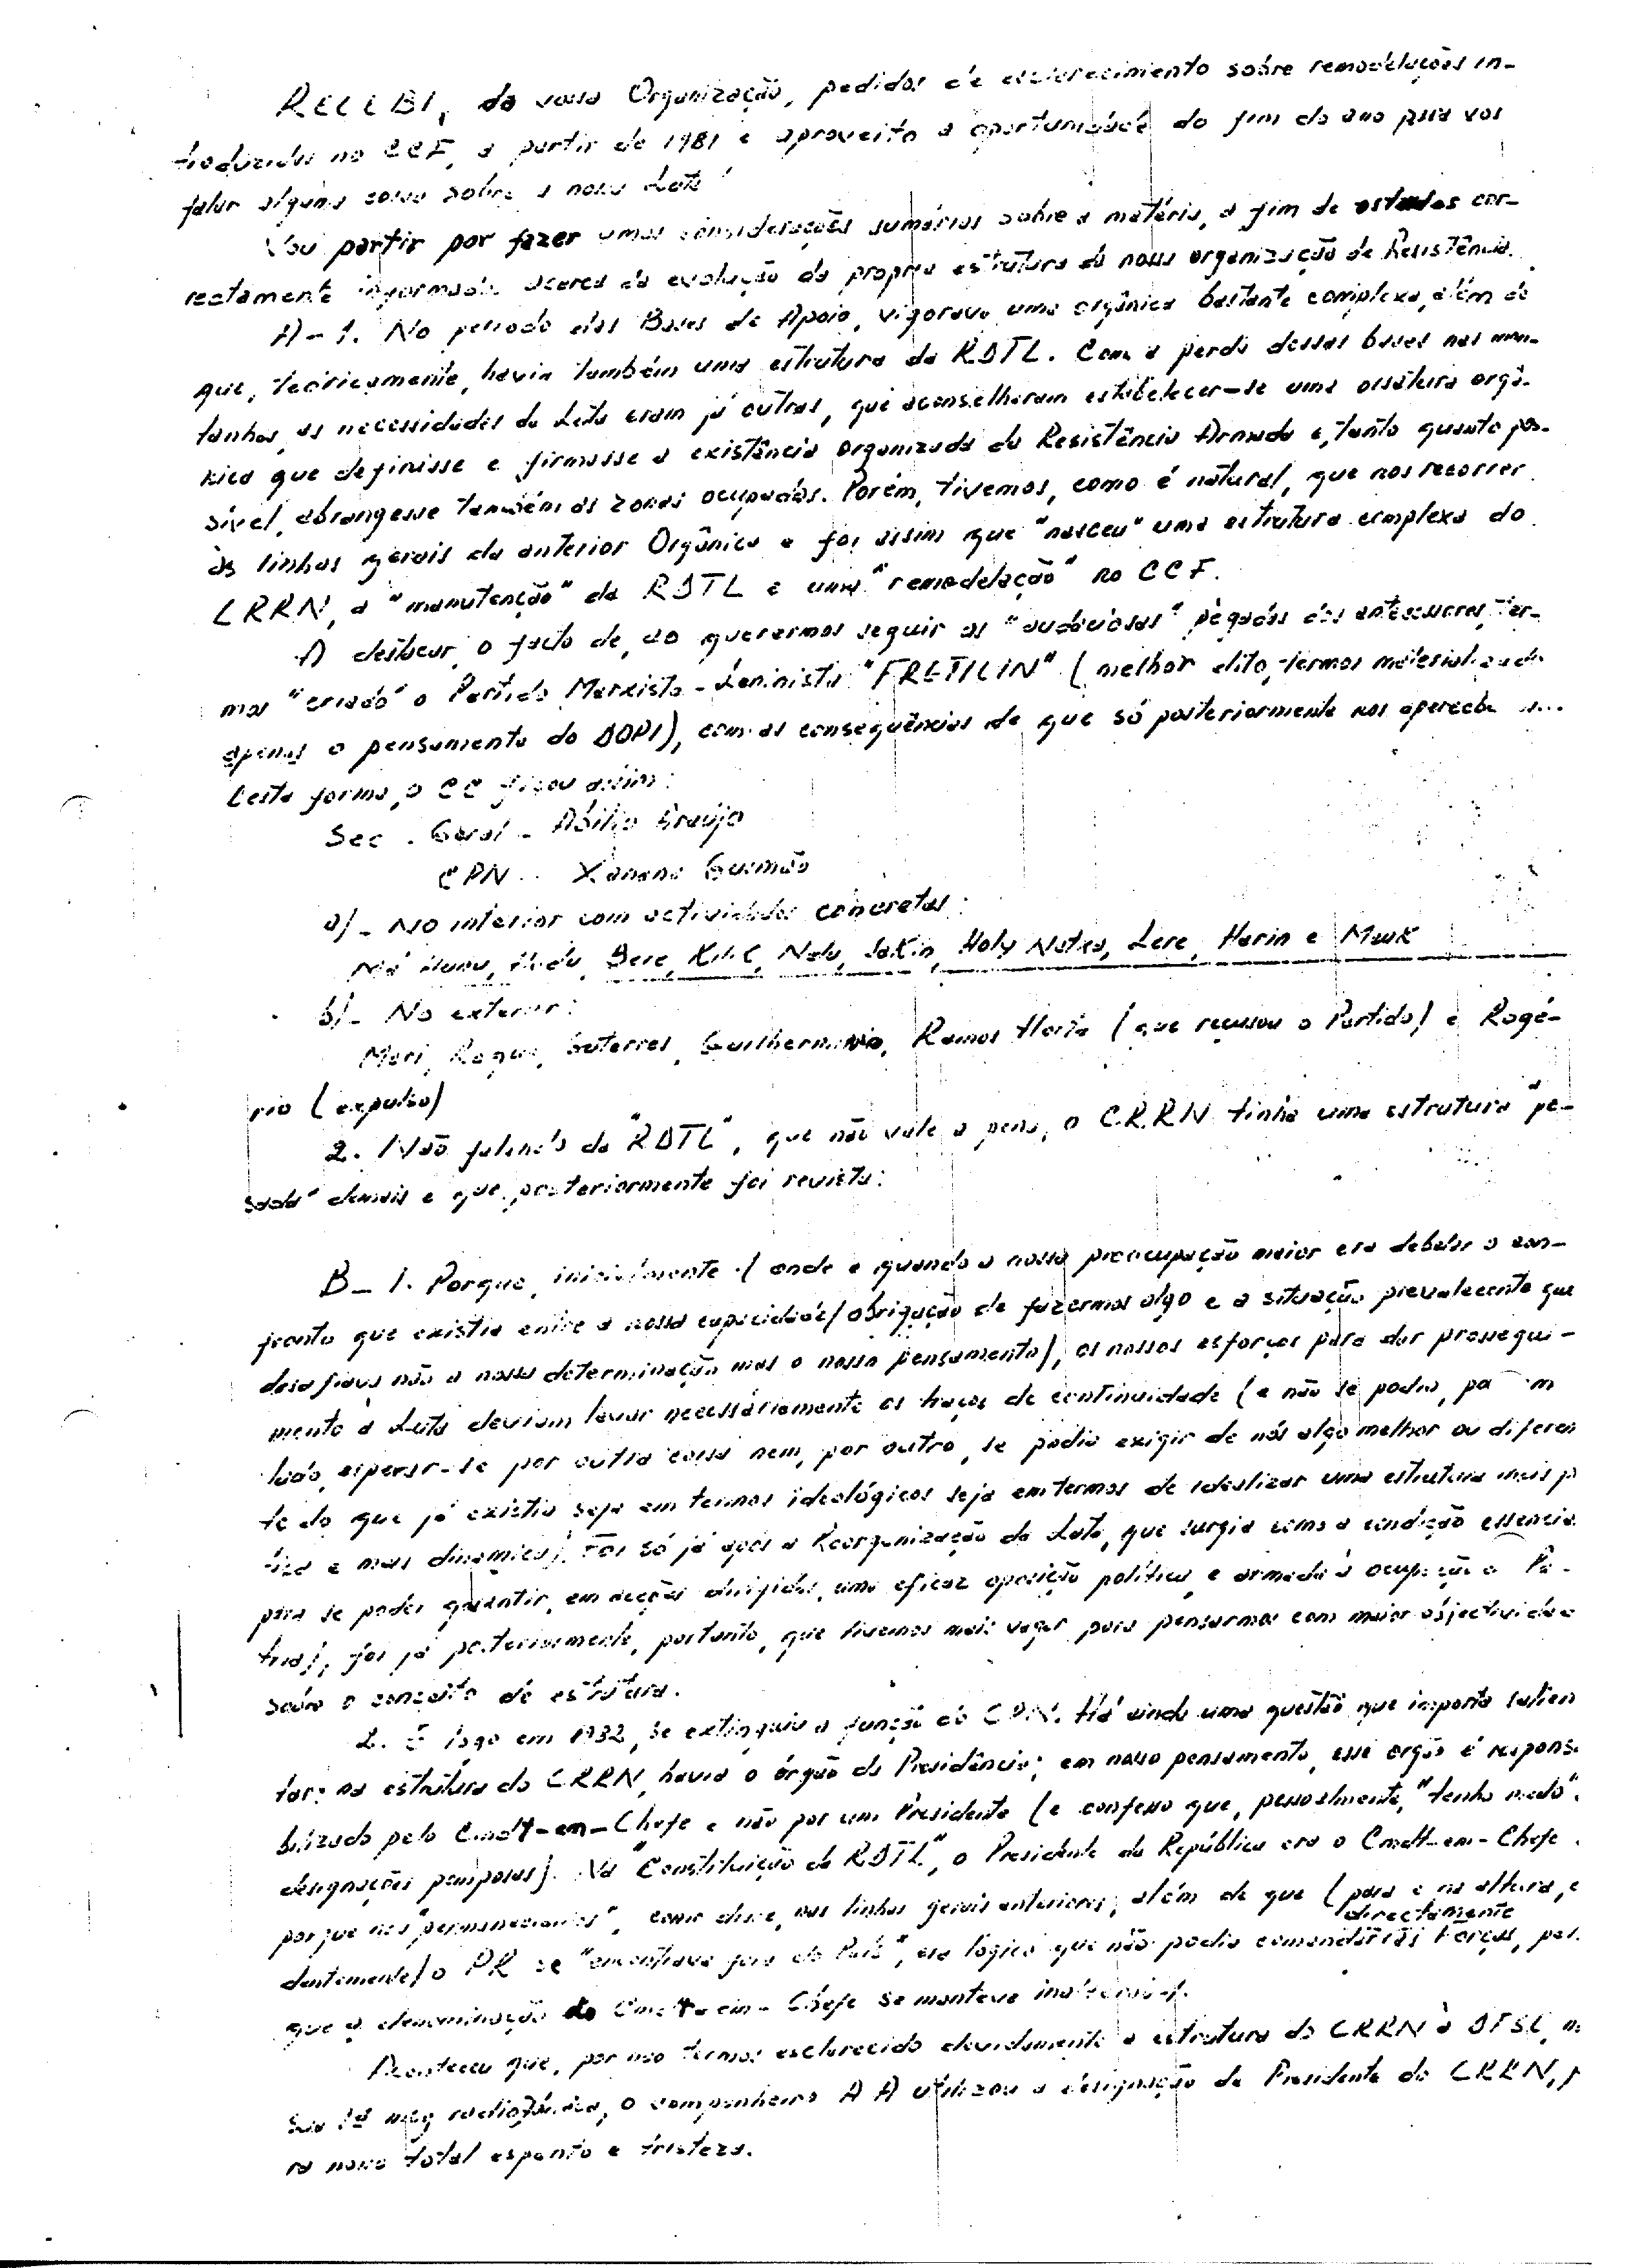 RECEBI, da vossa Organização, pedidos de esclarecimento sobre remodelações in-
troduzidas no CCF, a partir de 1981 e aproveito a oportunidade do fim do ano para vos
falar alguma coisa sobre a nossa Luta!
Vou partir por fazer umas considerações sumárias sobre a matéria, a fim de estardes cor-
rectamente informados acerca da evolução da própria estrutura da nossa organização de Resistência.
A-1. No período das Bases de Apoio, vigorava uma orgânica bastante complexa, além de
que, teóricamente, havia também uma estrutura da RDTL. Com a perda dessas bases nas mon-
tanhas, as necessidades da Luta eram já outras, que aconselharam estabelecer-se uma ossatura orgâ-
nica que definisse e firmasse a existência organizada da Resistência Armada e, tanto quanto pos-
sível, abrangesse também as zonas ocupadas. Porém, tivemos, como é natural, que nos recorrer
às linhas gerais da anterior Orgânica e foi assim que "nasceu" uma estrutura complexa do
CRRN, a "manutenção" da RDTL e uma "remodelação" no CCF.
A destacar, o facto de, ao querermos seguir as "audaciosas" pègadas dos antecessores, ter-
mos "criado" o Partido Marxista-Leninista "FRETILIN" (melhor dito, termos materializado
apenas o pensamento do DOPI), com as consequências de que só posteriormente nos apercebe
Desta forma, o CC ficou assim:
Sec. Geral - Abílio Araújo
CPN - Xanana Gusmão
a)- No interior com actividades concretas:
Má Hunu, Bere, Kilik, Nalu, Sakin, Holy Natxa, Lere, Harin e Mauk
b)- No exterior:
Mari, Roque, Guterres, Guilhermina, Ramos Horta (que recusou o Partido) e Rogé-
rio (expulso)
2. Não falando da "RDTL", que não vale a pena, o CRRN tinha uma estrutura "pe-
sada" demais e que posteriormente foi revista:
B-1. Porque, inicialmente (onde e quando a nossa preocupação maior era debelar o con-
fronto que existia entre a nossa capacidade/obrigação de fazermos algo e a situação prevalecente que
desafiava não a nossa determinação mas o nosso pensamento), os nossos esforços para dar prossegui-
mento à Luta deviam levar necessáriamente os traços de continuidade (e não se podia, por um
lado, esperar-se por outra coisa nem, por outro, se podia exigir de nós algo melhor ou diferen
te do que já existia seja em termos ideológicos seja em termos de idealizar uma estrutura mais p
tica e mais dinâmica). Foi só já após a Reorganização da Luta, que surgia como a condição essencia
para se poder garantir, em acções dirigidas, uma eficaz oposição política e armada à ocupação a Pá-
tria), foi já posteriormente, portanto, que tivemos mais vagar para pensarmos com maior objectividade
sobre o conceito de estrutura.
2. E logo em 1982, se extinguiu a função do CPN. Há ainda uma questão que importa salien
tar: na estrutura do CRRN, havia o órgão da Presidência; em nosso pensamento, esse orgão é respons
bilizado pelo Cmdt-em-Chefe e não por um Presidente (e confesso que, pessoalmente, "tenho medo"
designações pomposas). Na "Constituição da RDTL", o Presidente da República era o Cmdt-em-Chefe
porque nós "permanecíamos", como disse, nas linhas gerais anteriores; além de que (para e na altura, e
directamente
dentemente) o PR se "encontrava fora do País", era lógico que não podia comandar as Forças, pel
que a denominação do Cmdt-em-Chefe se manteve
Aconteceu que, por não termos esclarecido devidamente a estrutura do CRRN à DFSE, na
sua 1ª msg radiofónica, o companheiro AA utilizou a designação de Presidente do CRRN, p
ra nosso total espanto e tristeza.